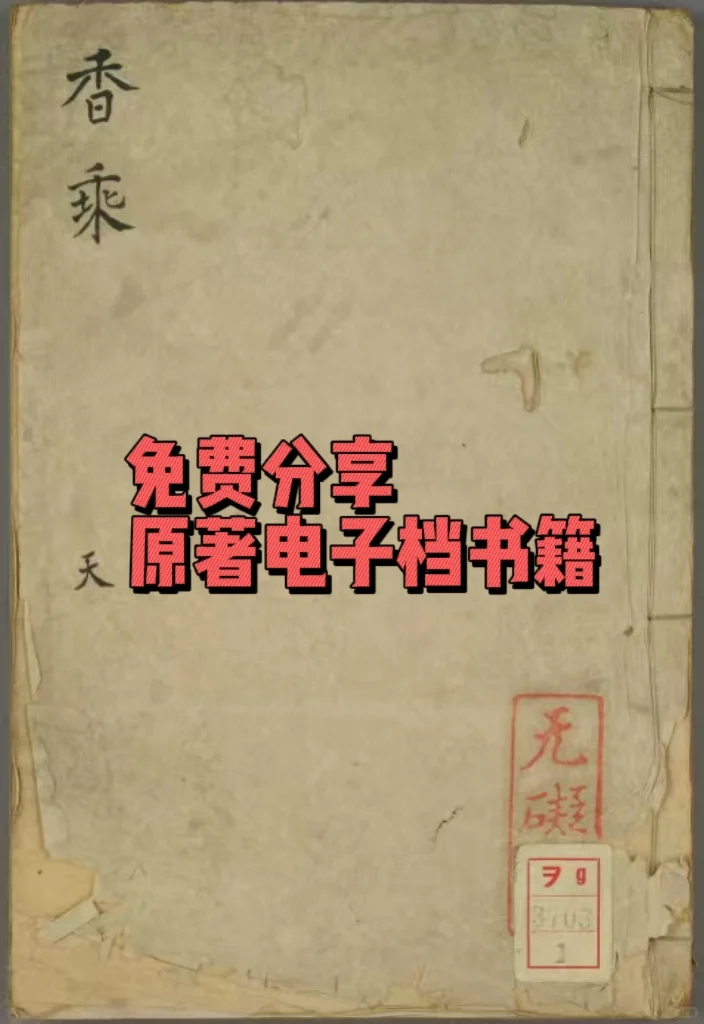 香乘
天
免费分享
原著电子档书籍
无礙
ヲ 9
3703
1